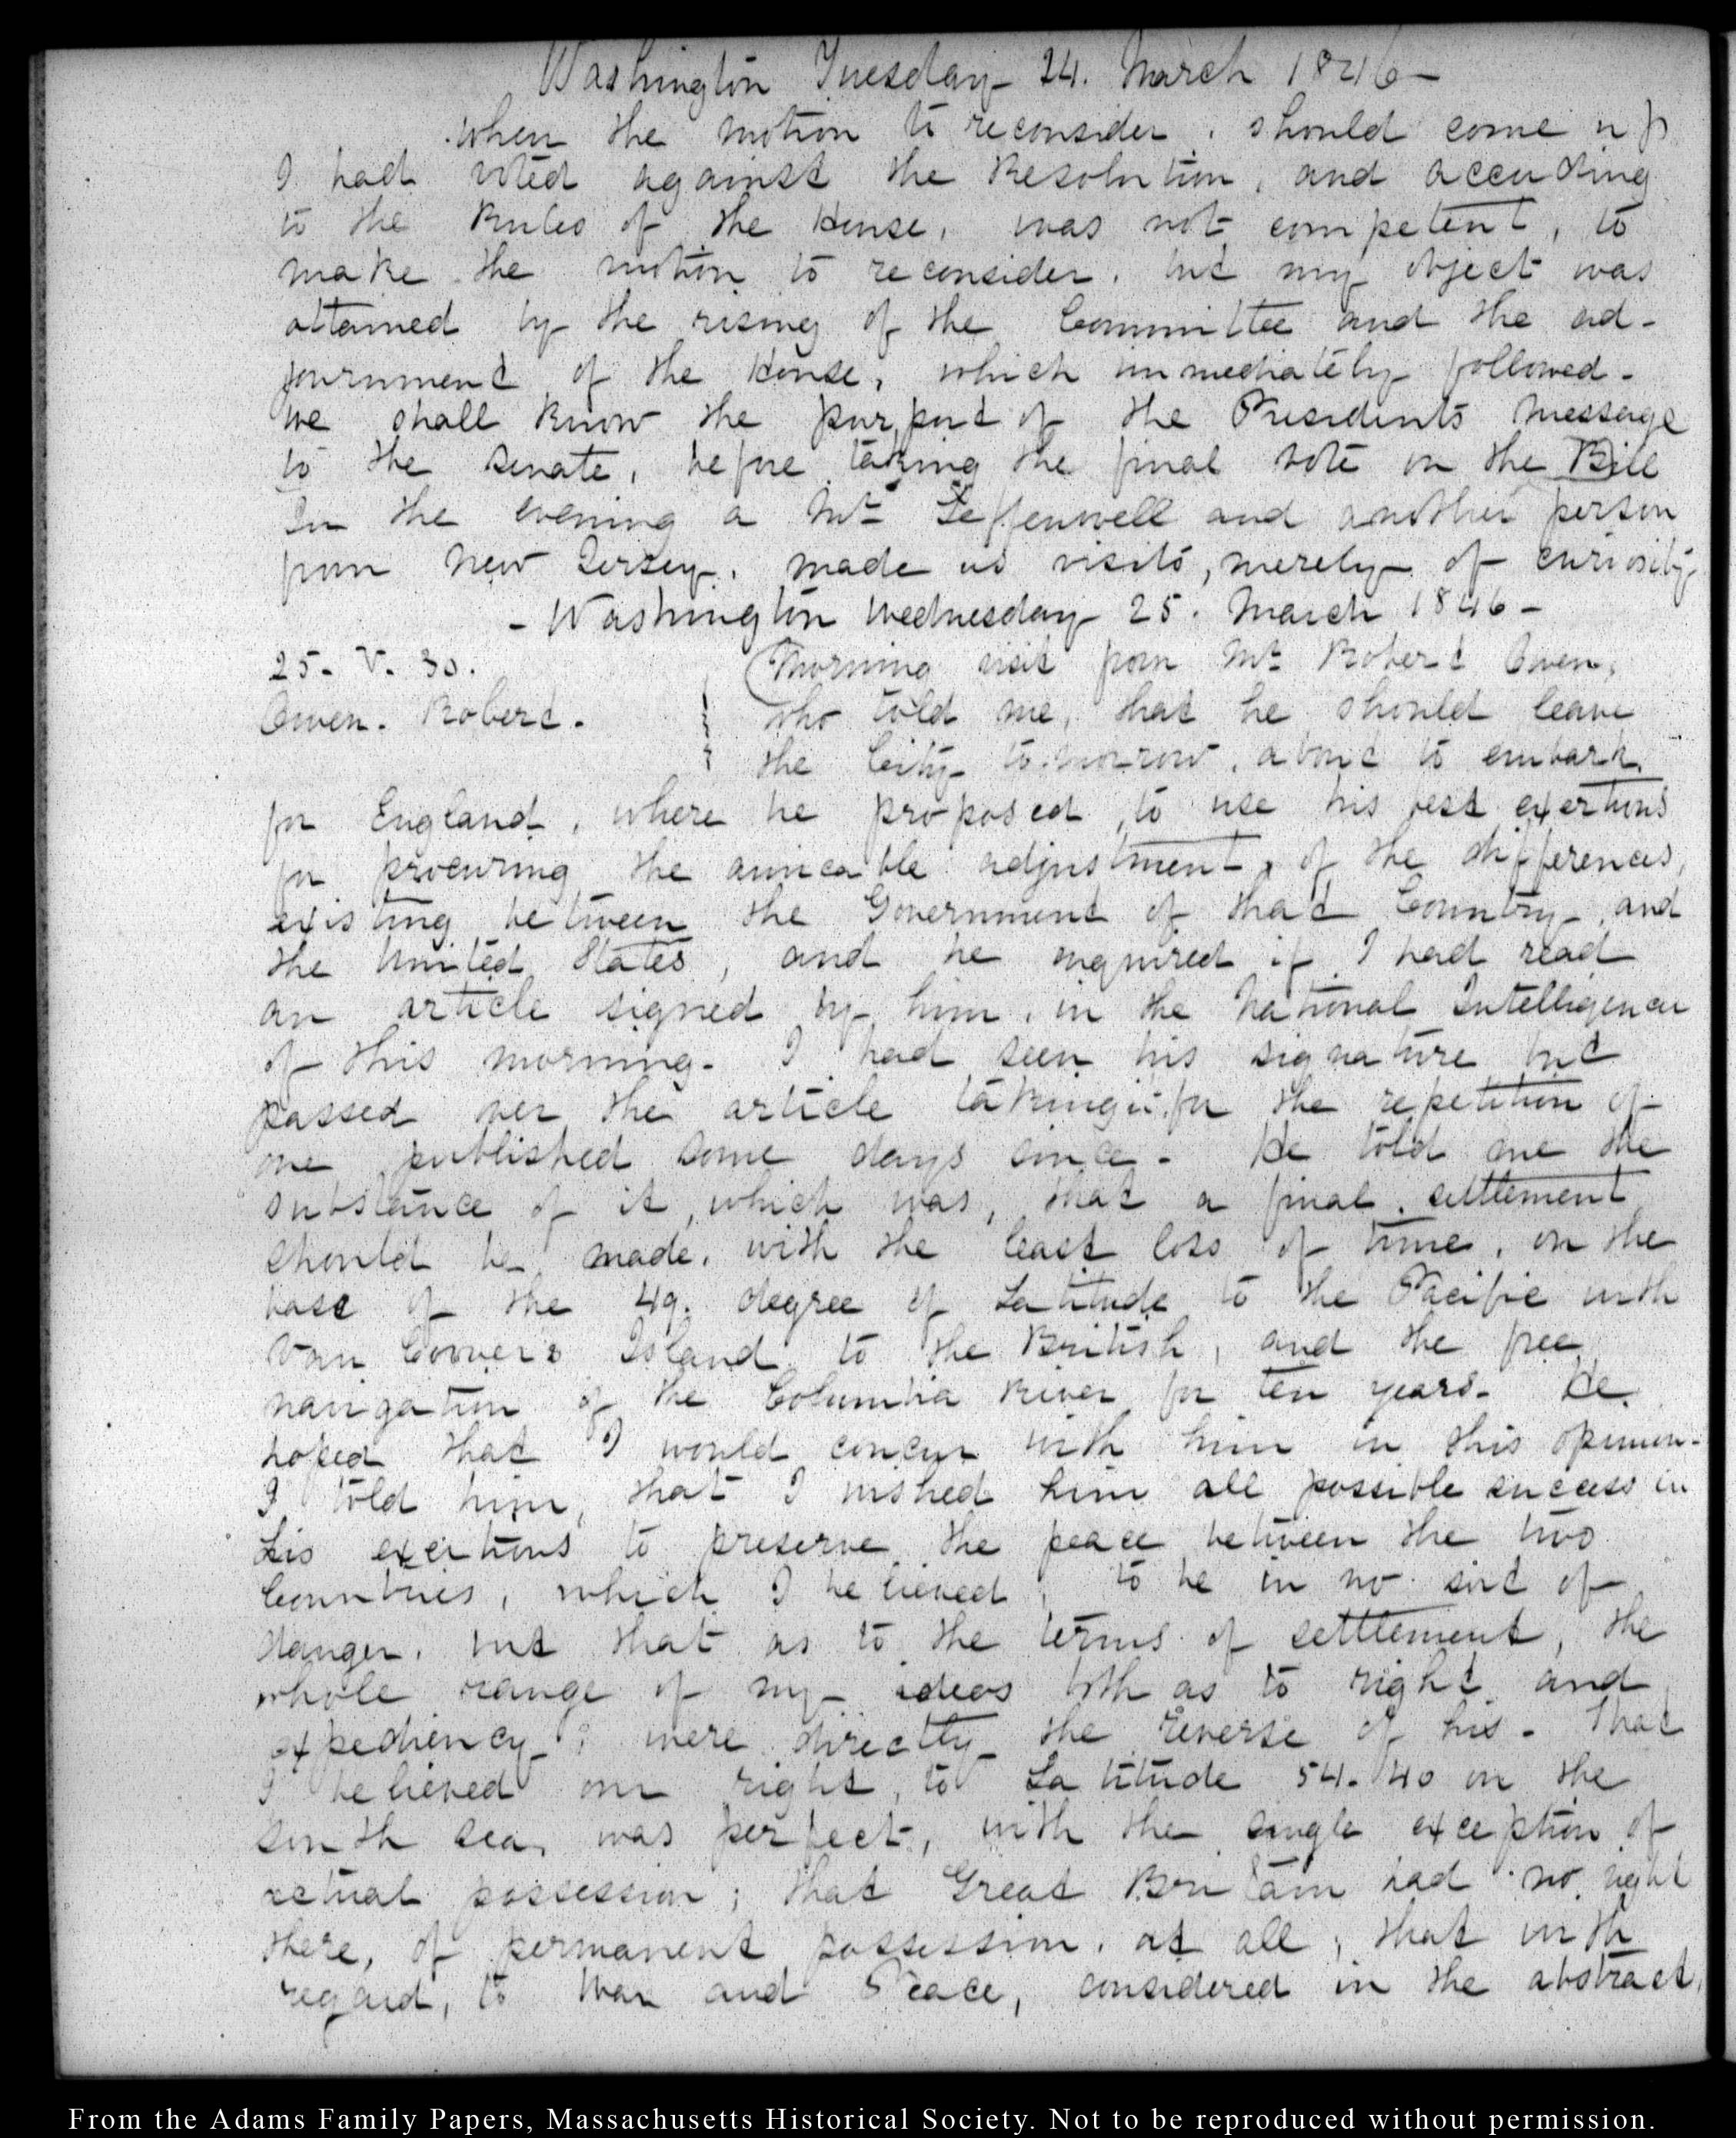 Washington Tuesday 24. March 1846-
when the motion to reconsider, should come up
I had voted against the Resolution, and according
to the Rules of the House, was not competent, to
make the motion to reconsider. but my object was
attained by the rising of the Committee and the ad-
journment of the House, which immediately followed-
We shall know the purport of the Presidents message
to the Senate, before taking the final vote on the Bill
In the evening a Mr. Leffenwell and another person
from New Jersey, made us visits, merely of curiosity-
- Washington Wednesday 25. March 1846-
25- V. 30.
Owen. Robert-
Morning visit from Mr. Robert Owen,
who told me, that he should leave
the City to-morrow, about to embark
for England, where he proposed, to use his best exertions
for procuring the amicable adjustment, of the differences,
existing between the Government of that Country, and
the United States, and he inquired if I had read
an article signed by him, in the National Intelligencer
of this morning- I had seen his signature but
passed over the article taking it for the repetition of
one published some days since- He told me the
substance of it, which was, that a final settlement
should be made, with the least loss of time, on the
base of the 49. degree of Latitude to the Pacific with
Van Couvers Island to the British, and the free
navigation of the Columbia River for ten years- He
hoped that I would concur with him in this opinion-
I told him, that I wished him all possible success in
his exertions to preserve the peace between the two
Countries, which I believed, to be in no sort of
danger. but that as to the terms of settlement, the
whole range of my ideas both as to right and
expediency; were directly the reverse of his- That
I believed our right, to Latitude 54. 40 on the
south sea, was perfect, with the single exception of
actual possession; that Great Britain had no right
there, of permanent possession, at all; that with
regard, to War and Peace, considered in the abstract,
From the Adams Family Papers, Massachusetts Historical Society. Not to be reproduced without permission.